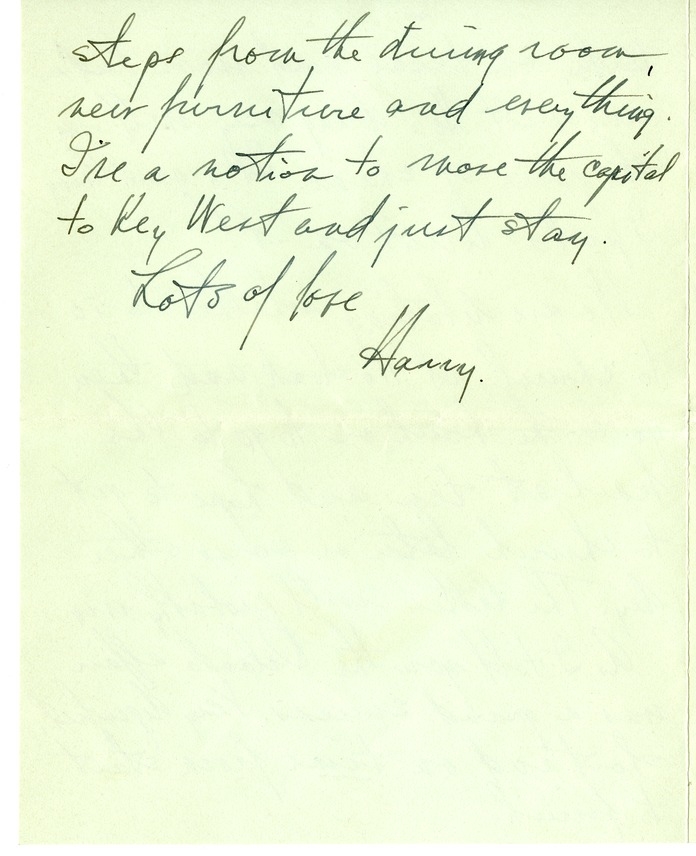 steps from the dining room,
new furniture and everything.
I've a notion to move the capital
to Key West and just stay.
Lots of love
Harry.